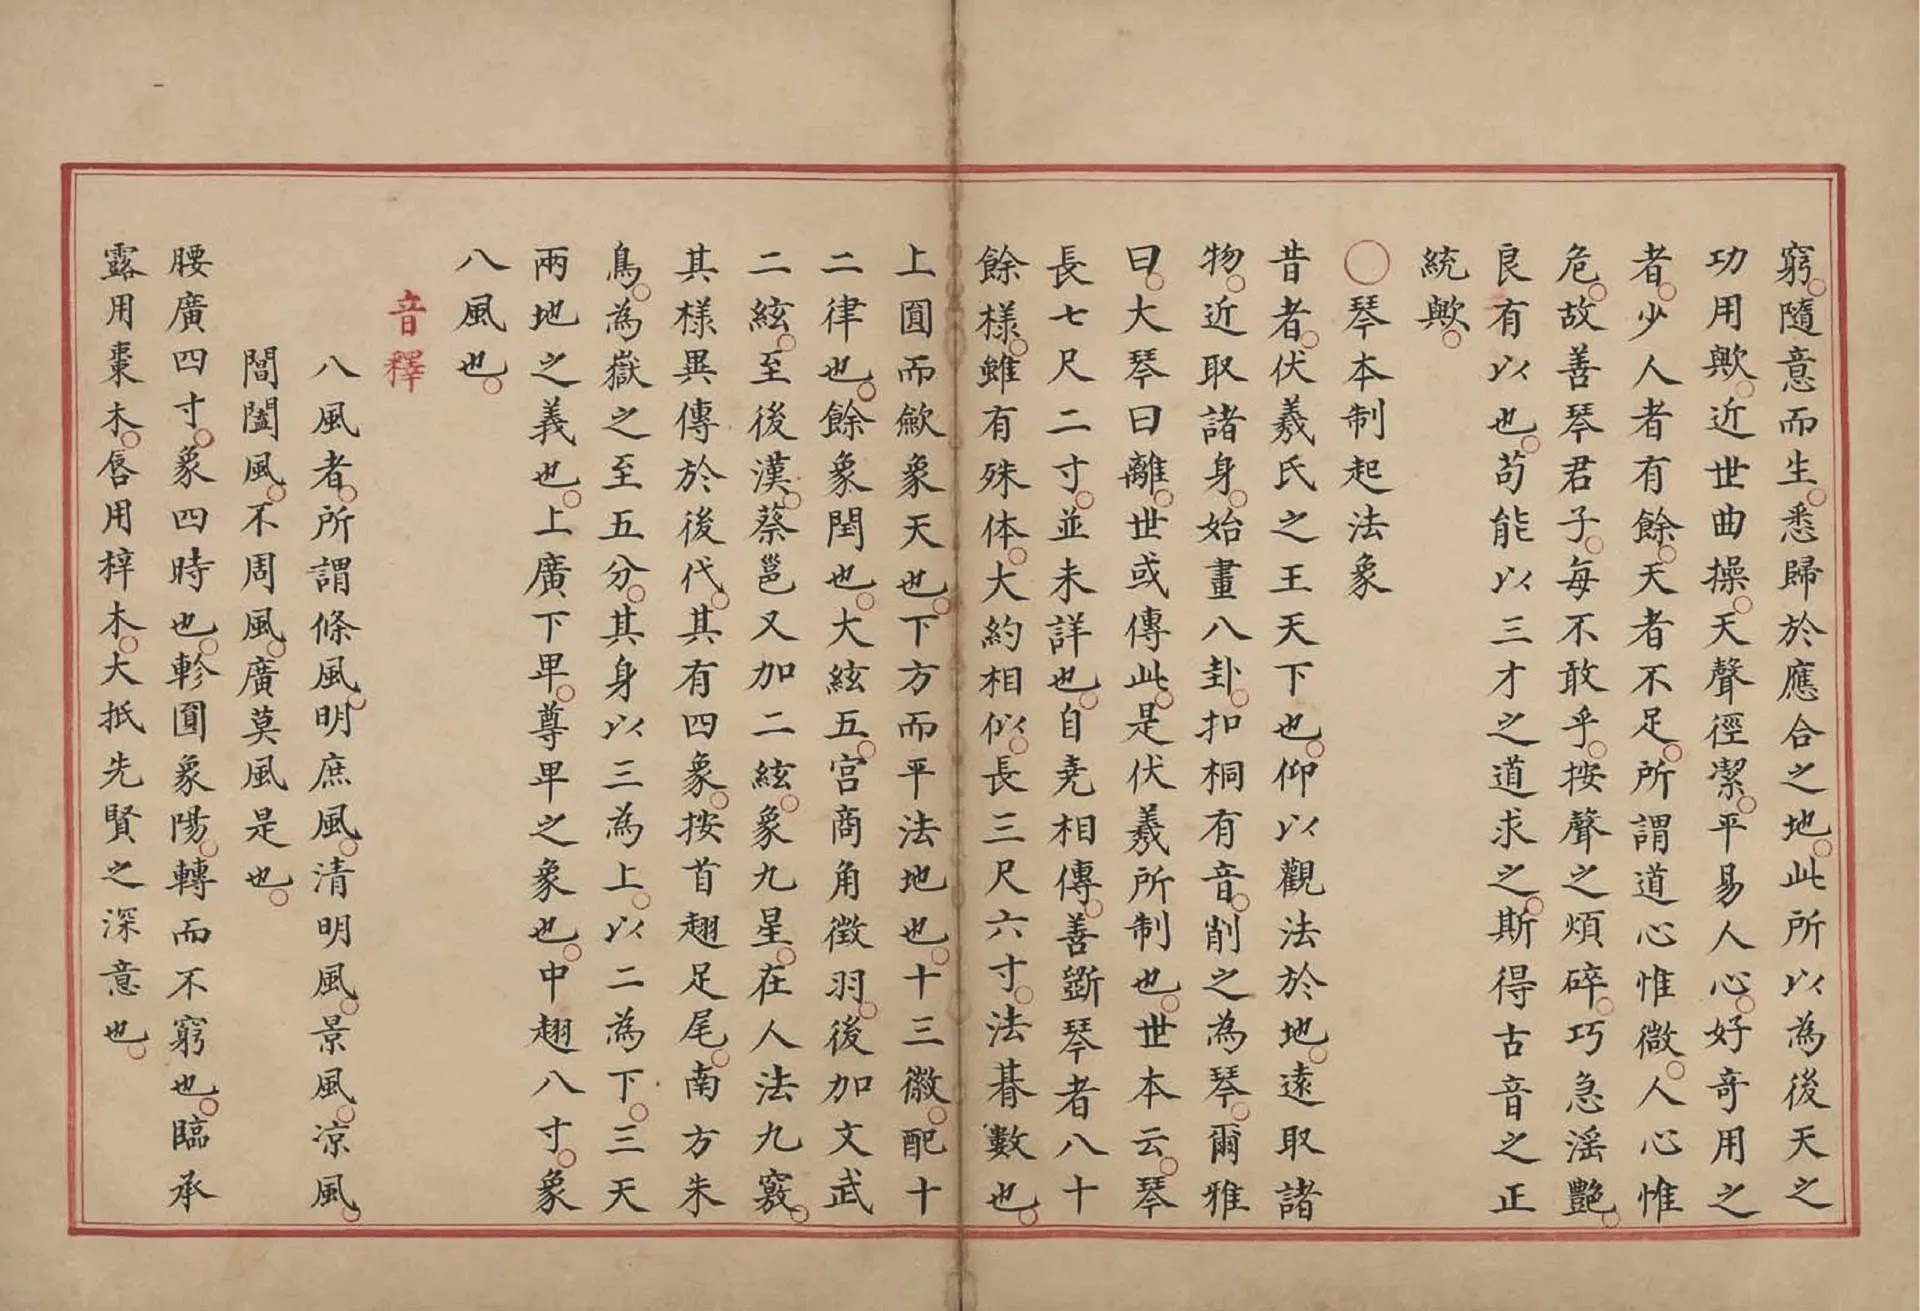 窮。隨意而生。悉歸於應合之地。此所以為後天之
功用歟。近世曲操。天聲徑潔。平易人心。好奇用之
者。少人者有餘。天者不足。所謂道心惟微。人心惟
危。故善琴君子。每不敢乎。按聲之煩碎。巧急淫艷。
良有以也。苟能以三才之道求之。斯得古音之正
統歟。
○琴本制起法象
昔者。伏羲氏之王天下也。仰以觀法於地。遠取諸
物。近取諸身。始畫八卦。扣桐有音。削之為琴。爾雅
曰。大琴曰離。世或傳此。是伏羲所制也。世本云。琴
長七尺二寸。並未詳也。自尭相傳。善斵琴者八十
餘樣。雖有殊体。大約相似。長三尺六寸。法朞數也。
上圓而歛象天也。下方而平法地也。十三徽。配十
二律也。餘象閏也。大絃五。宮商角徵羽。後加文武
二絃。至後漢。蔡邕又加二絃。象九星。在人法九竅。
其樣異傳於後代。其有四象。按首翅足尾。南方朱
鳥。為嶽之至五分。其身以三為上。以二為下。三天
兩地之義也。上廣下卑。尊卑之象也。中翅八寸。象
八風也。
音釋
八風者。所謂條風。明庶風。清明風。景風。凉風。
閶闔風。不周風。廣莫風是也。
腰廣四寸。象四時也。軫圓象陽。轉而不窮也。臨承
露用棗木。唇用梓木。大抵先賢之深意也。